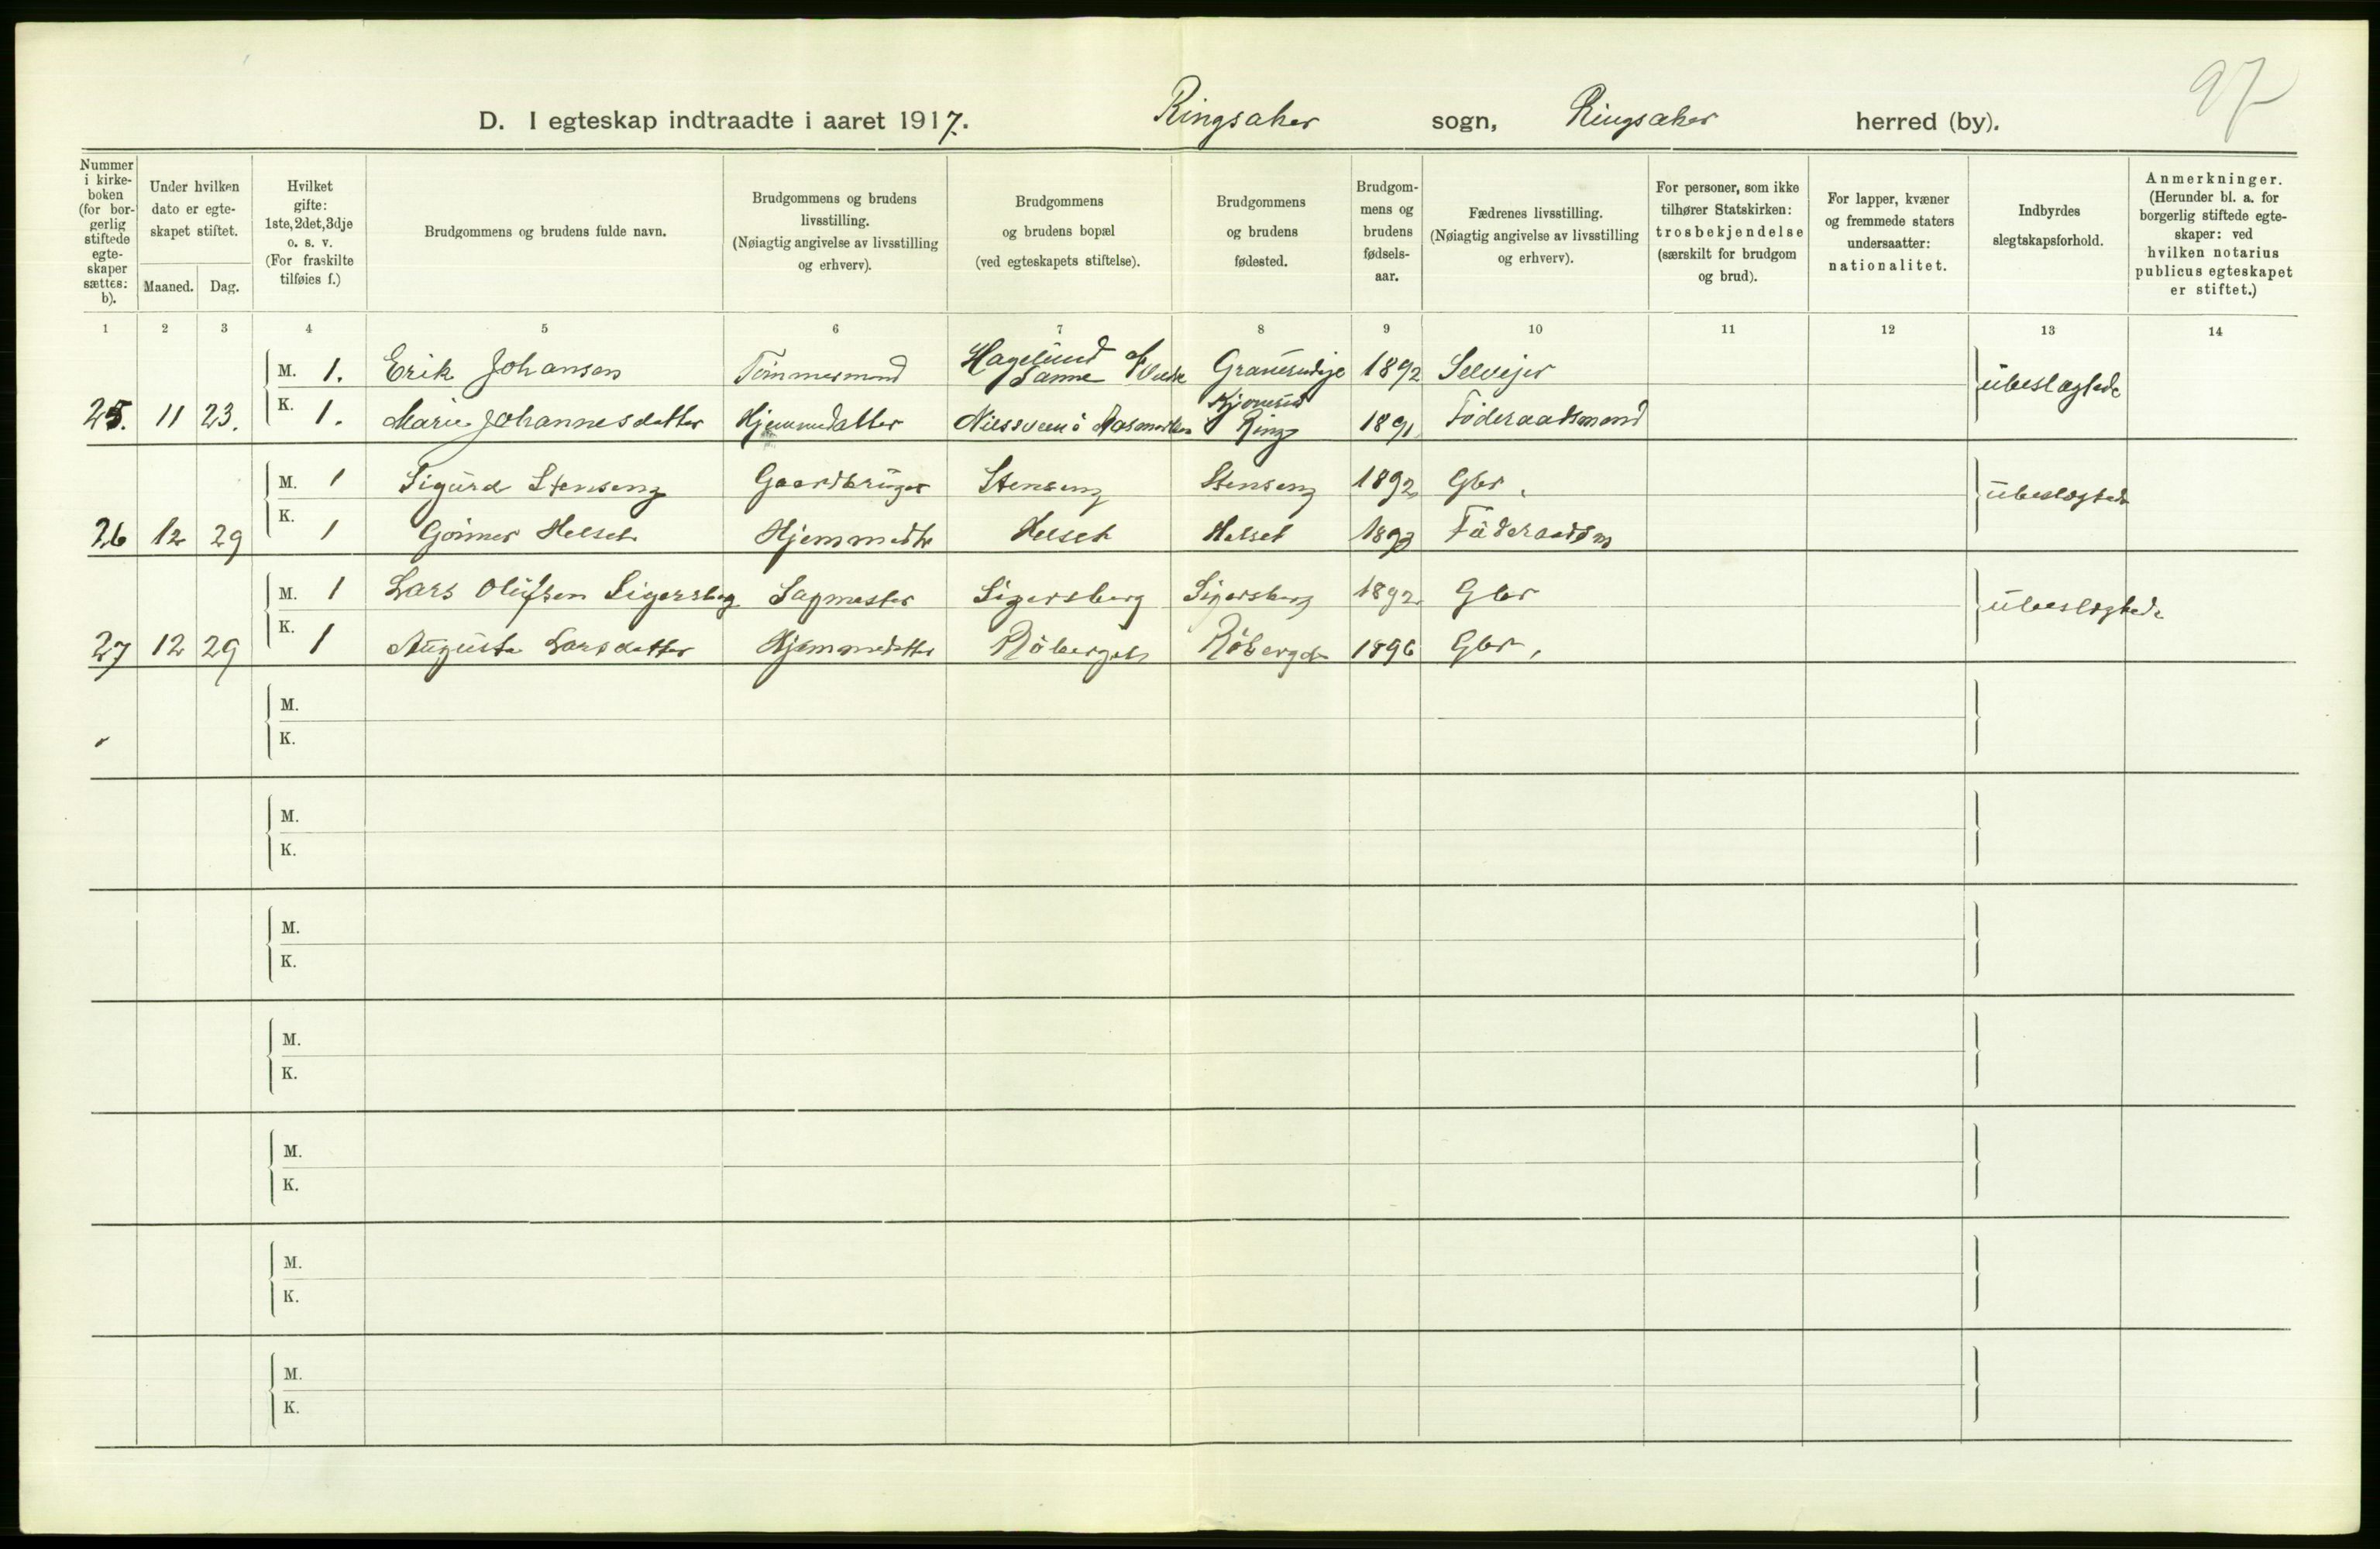 97
D. I egteskap indtraadte i aaret 1917. Ringsaker sogn, Ringsaker herred (by).
Nummer i kirke-boken (for bor-gerlig stiftede egte-skaper sættes: b).
Under hvilken dato er egte-skapet stiftet.
Maaned. Dag.
Hvilket gifte: 1ste, 2det, 3dje o. s. v. (For fraskilte tilføies f.)
Brudgommens og brudens fulde navn.
Brudgommens og brudens livsstilling. (Nøiagtig angivelse av livsstilling og erhverv).
Brudgommens og brudens bopæl (ved egteskapets stiftelse).
Brudgommens og brudens fødested.
Brudgom-mens og brudens fødsels-aar.
Fædrenes livsstilling. (Nøiagtig angivelse av livsstilling og erhverv).
For personer, som ikke tilhører Statskirken: trosbekjendelse (særskilt for brudgom og brud).
For lapper, kvæner og fremmede staters undersaatter: nationalitet.
Indbyrdes slegtskapsforhold.
Anmerkninger. (Herunder bl. a. for borgerlig stiftede egte-skaper: ved hvilken notarius publicus egteskapet er stiftet.)
1 2 3 4 5 6 7 8 9 10 11 12 13 14
M. 1. Erik Johansen Tömmermand Hagelund 1892 Selvejer ubeslægtede
25. 11 23. K. 1. Marie Johannesdatter Hjemmedatter Ring 1891 Föderaadsmand
M. 1 Sigurd Stenseng Gaardbruger Stenseng Stenseng 1892 Gbr. ubeslægtede
26 12 29 K. 1 Helset Hjemmedtr Helset Helset Föderaadsm
M. 1 Lars Olufsen Sigersberg Sagmester Sigersberg Sigersberg 1892 Gbr ubeslægtede
27 12 29 K. 1 Augusta Larsdatter Hjemmedatter 1896 Gbr.
M.
K.
M.
K.
M.
K.
M.
K.
M.
K.
M.
K.
M.
K.